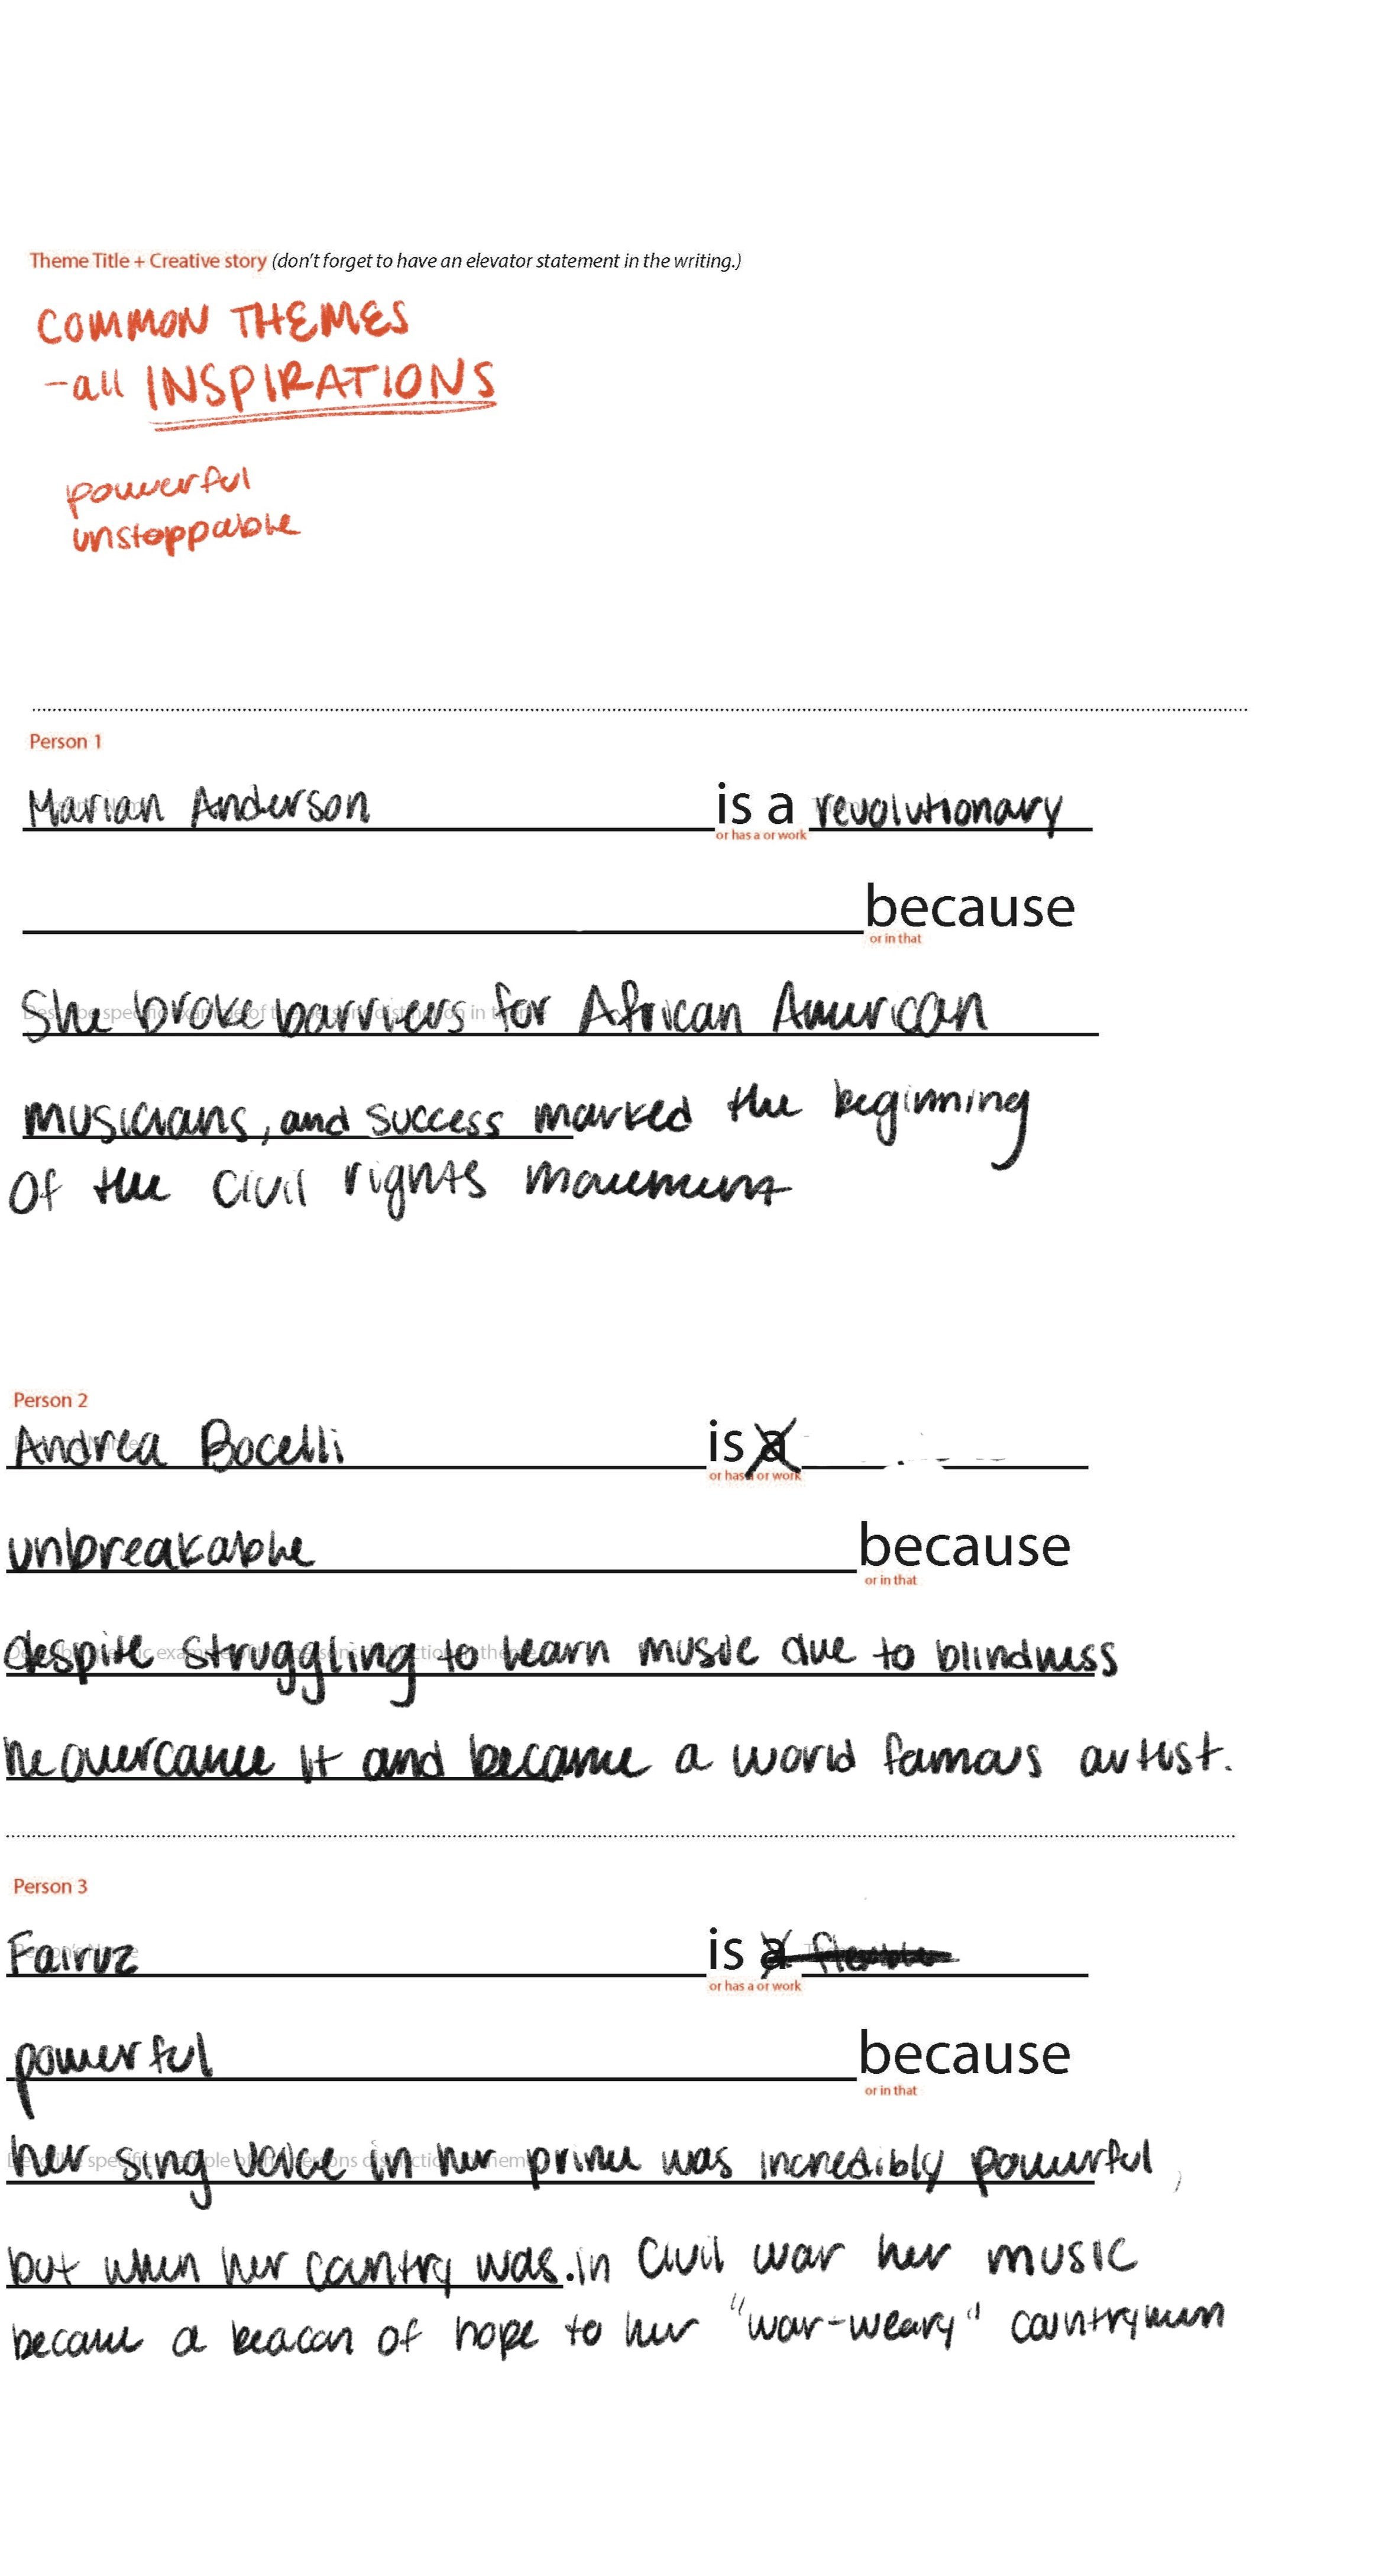 Theme Title + Creative story (don't forget to have an elevator statement in the writing.)
COMMON THEMES
-all INSPIRATIONS
powerful
unstoppable
Person 1
Marian Anderson is a revolutionary
or has a or work
because
or in that
She broke barriers for African American
musicians, and success marked the beginning
of the civil rights movement
Person 2
Andrea Bocelli is a
or has a or work
unbreakable because
or in that
despite struggling to learn music due to blindness
he overcame it and became a world famous artist.
Person 3
Fairuz is a
or has a or work
powerful because
or in that
her sing voice in her prime was incredibly powerful,
but when her country was.in civil war her music
became a beacon of hope to her "war-weary" countrymen